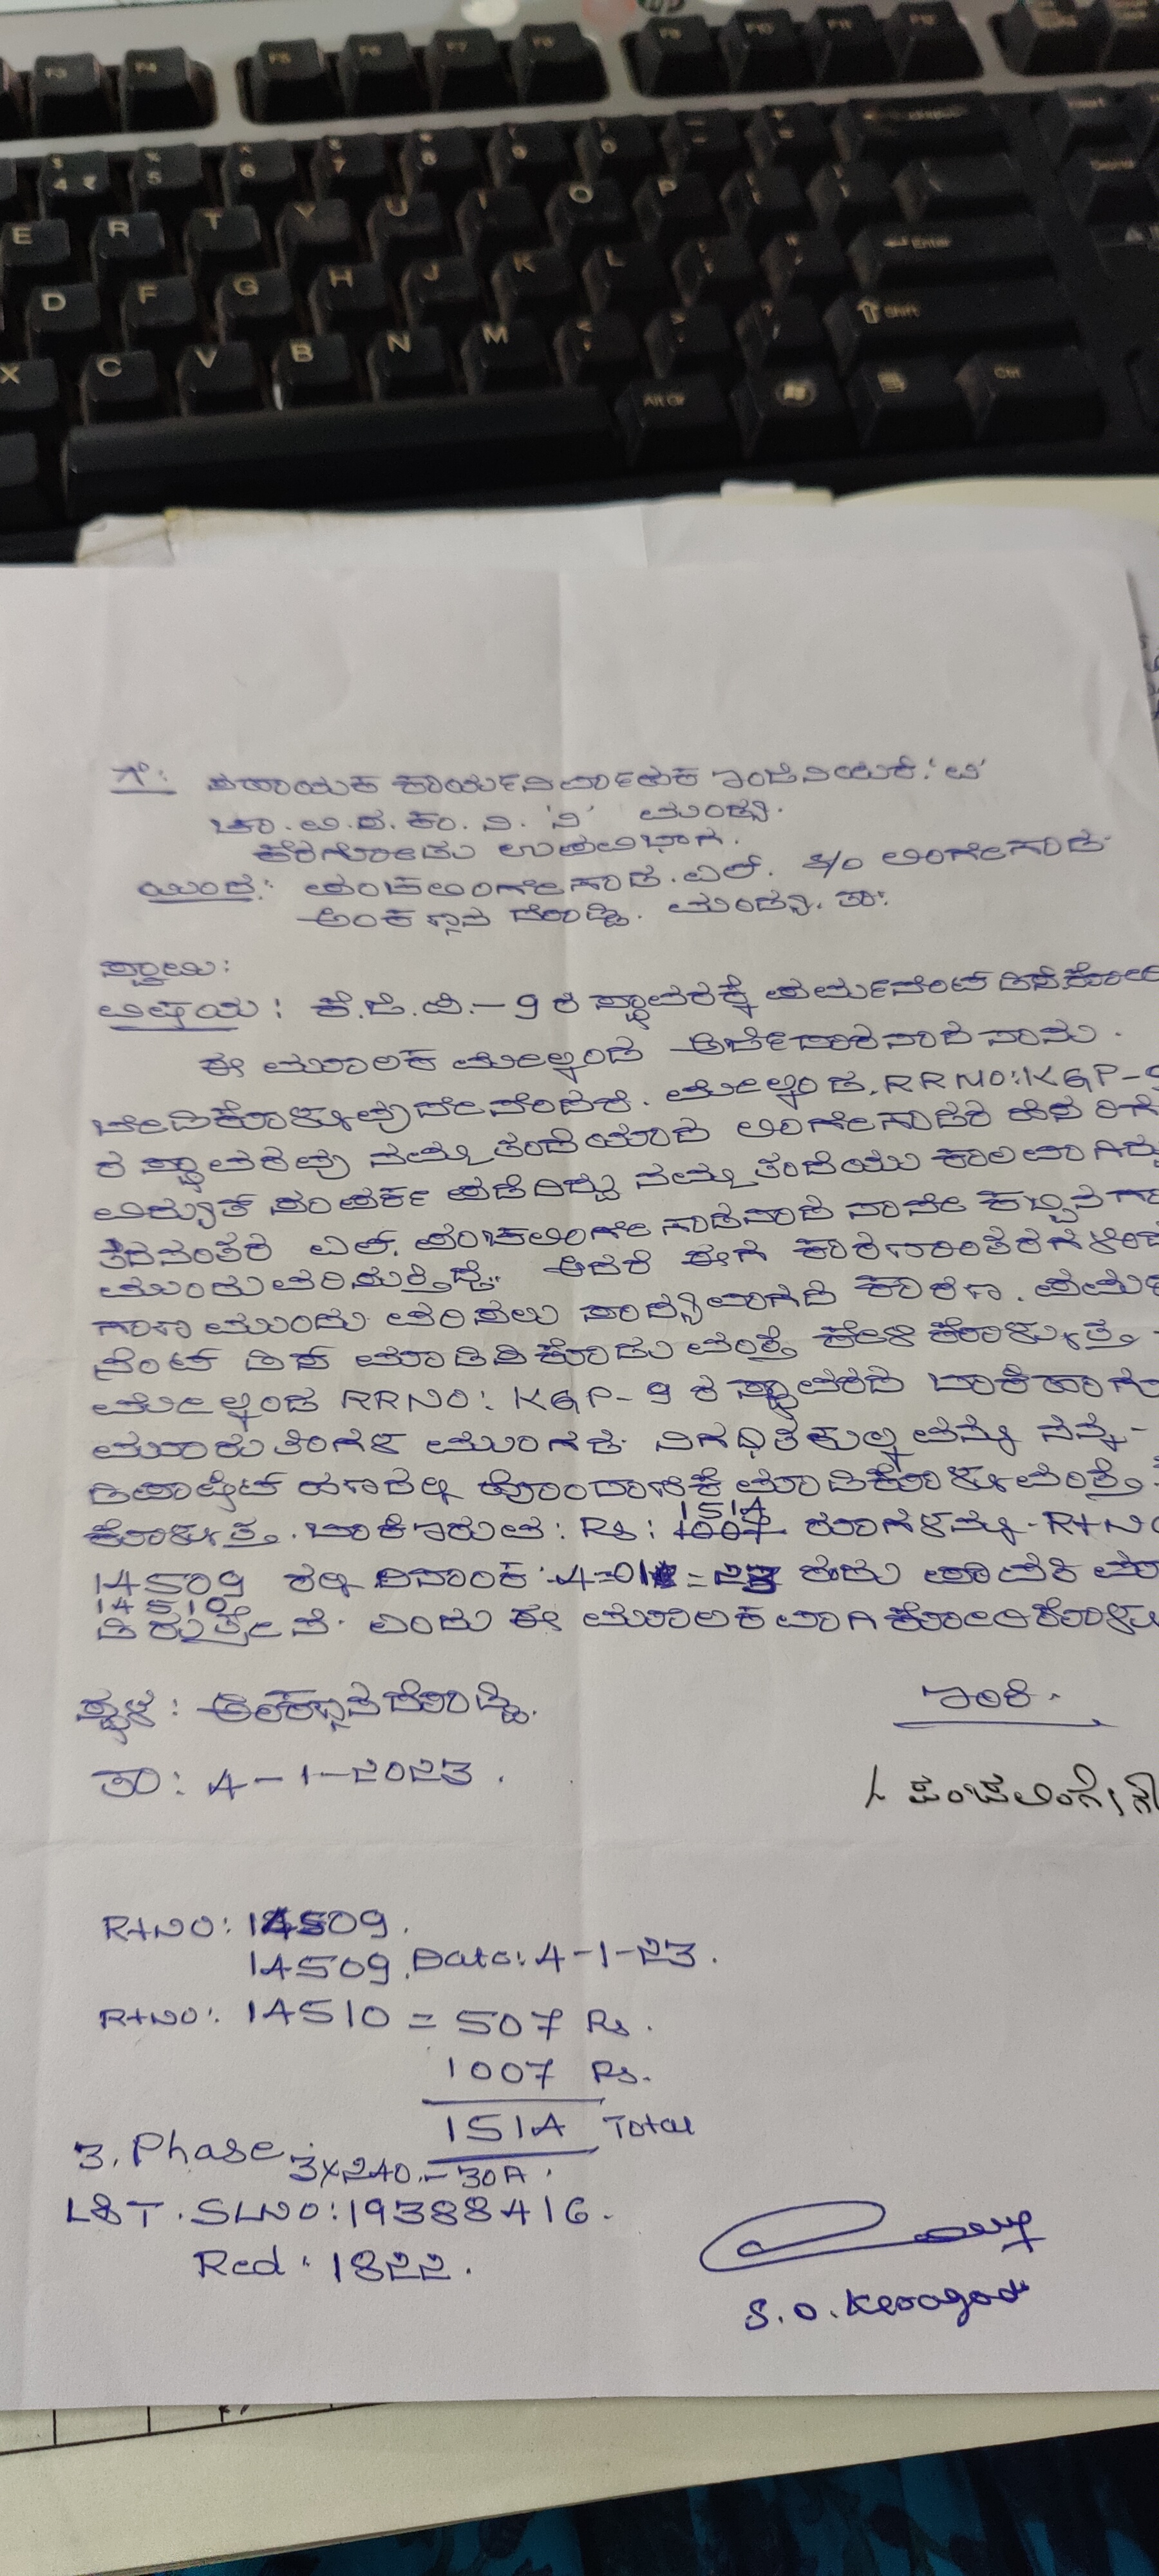 F3 F4 F5 F6 F7 F8 F9 F10 F11 F12
4 5 6 7 8 9 0
E R T Y U I O P
D F G H J K L Enter
X C V B N M Shift
Alt Gr Ctrl
ಗೆ: ಸಹಾಯಕ ಕಾರ್ಯನಿರ್ವಾಹಕ ಇಂಜಿನಿಯರ್. 'ವಿ'
ಚಾ.ವಿ.ಸ.ಕಂ.ನಿ. 'ನಿ' ಮಂಡ್ಯ.
ಕೆರಗೋಡು ಉಪವಿಭಾಗ.
ಯಿಂದ: ಪಂಚಲಿಂಗೇಗೌಡ.ಎಲ್. S/o ಲಿಂಗೇಗೌಡ
ಅಂಕಣ್ಣನ ದೊಡ್ಡಿ. ಮಂಡ್ಯ. ತಾ:
ಸ್ವಾಮಿ:
ವಿಷಯ: ಕೆ.ಜಿ.ಪಿ.-9 ರ ಸ್ಥಾವರಕ್ಕೆ ಪರ್ಮನೆಂಟ್ ಡಿಸ್
ಈ ಮೂಲಕ ಮೇಲ್ಕಂಡ ಅರ್ಜಿದಾರನಾದ ನಾನು.
ಬೇಡಿಕೊಳ್ಳುವುದೇನೆಂದರೆ. ಮೇಲ್ಕಂಡ. RRNO:KGP-9
ರ ಸ್ಥಾವರವು ನಮ್ಮ ತಂದೆಯಾದ ಲಿಂಗೇಗೌಡರ ಹೆಸರಿಗೆ
ವಿದ್ಯುತ್ ಸಂಪರ್ಕ ಪಡೆದಿದ್ದು ನಮ್ಮ ತಂದೆಯು ಕಾಲವಾಗಿದ್ದು
ತದನಂತರ ಎಲ್. ಪಂಚಲಿಂಗೇಗೌಡನಾದ ನಾನೇ ಕಬ್ಬಿನ
ಮುಂದುವರಿಸುತ್ತಿದ್ದೆ. ಆದರೆ ಈಗ ಕಾರಣಾಂತರಗಳಿಂದ
ಗಾಣ ಮುಂದು ವರಿಸಲು ಸಾಧ್ಯವಾಗದ ಕಾರಣ. ಪರ್ಮ
ನೆಂಟ್ ಡಿಸ್ ಮಾಡಿಸಿಕೊಡುವಂತೆ ಕೇಳಿಕೊಳ್ಳುತ್ತ
ಮೇಲ್ಕಂಡ RRNO: KGP-9 ರ ಸ್ಥಾವರದ ಬಾಕಿ ಹಾಗೂ
ಮೂರು ತಿಂಗಳ ಮುಂಗಡ ನಿಗಧಿತ ಶುಲ್ಕವನ್ನು ನನ್ನ-
ಡಿಪಾಸಿಟ್ ಹಣದಲ್ಲಿ ಹೊಂದಾಣಿಕೆ ಮಾಡಿಕೊಳ್ಳುವಂತೆ
1514
ಕೊಳ್ಳುತ್ತ. ಬಾಕಿ ಇರುವ: Rs: 1007 ರೂಗಳನ್ನು - RtNO
14509 ರಲ್ಲಿ ದಿನಾಂಕ 4-01-23 ರಂದು ಪಾವತಿ ಮಾ
14510
ಡಿರುತ್ತೇನೆ. ಎಂದು ಈ ಮೂಲಕವಾಗಿ ಕೋರಿಕೊಳ್ಳು
ಸ್ಥಳ: ಅಂಕಣ್ಣನದೊಡ್ಡಿ.
ಇಂತಿ.
ತಾ: 4-1-2023.
L ಪಂಚಲಿಂಗೇಗೌ
RtNO: 14509.
14509. Date: 4-1-23.
RtNO: 14510 = 507 Rs.
1007 Rs.
1514 Total
3. Phase.
3x240.-30A.
L&T. SLNO: 19388416.
Red: 1822.
S.O. Keragod